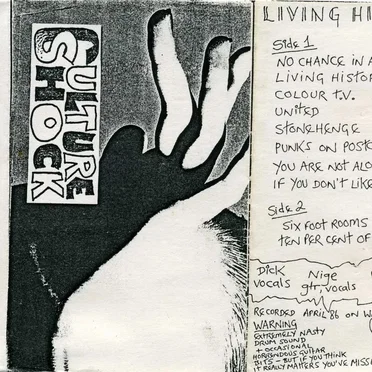 CULTURE
SHOCK
LIVING HI
Side 1
NO CHANCE IN A
LIVING HISTOR
COLOUR T.V.
UNITED
STONEHENGE
PUNKS ON POSTC
YOU ARE NOT ALO
IF YOU DON'T LIKE
Side 2
SIX FOOT ROOMS
TEN PER CENT OF
DICK
vocals
Nige
gtr, vocals
RECORDED APRIL '86 ON W
WARNING
EXTREMELY NASTY
DRUM SOUND
+ OCCASIONAL
HORRENDOUS GUITAR
BITS - BUT IF YOU THINK
IT REALLY MATTERS YOU'VE MISS